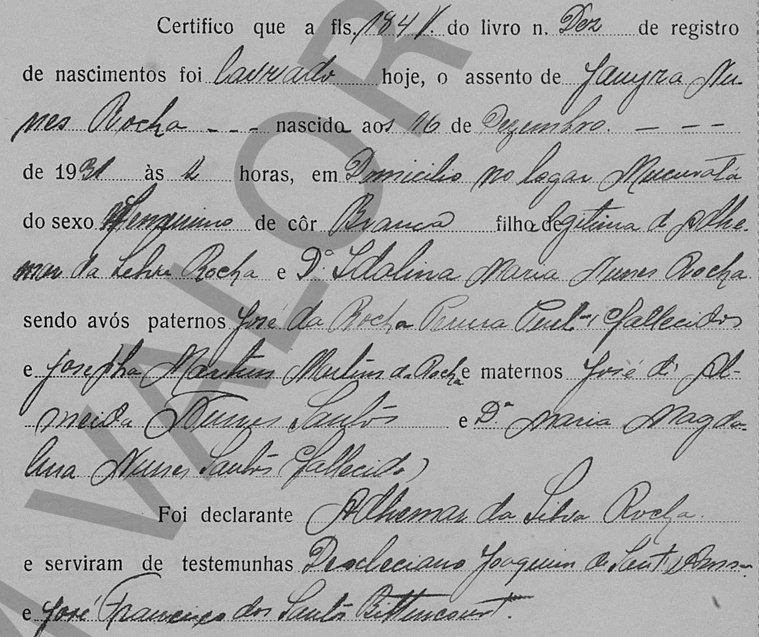 Certifico que a fls. 184 V. do livro n. Dez de registro
de nascimentos foi lavrado hoje, o assento de Jauyra Nu-
nes Rocha - - - nascida aos 16 de Dezembro. - - -
de 1931 às 2 horas, em Domicilio no logar Mucuratá
do sexo Femenino de côr Branca filha de legitima de Adhe-
mar da Silva Rocha e D.ª Idalina Maria Nunes Rocha
sendo avós paternos José da Rocha (fallecidos
e Josepha Martins Martins da Rocha e maternos José de Al-
meida Nunes Santos e D.ª Maria Magda-
lena Nunes Santos (fallecida)
Foi declarante Adhemar da Silva Rocha.
e serviram de testemunhas Deocleciano Joaquim de Sant'Anna
e José Francisco dos Santos Bittencourt.
VALOR